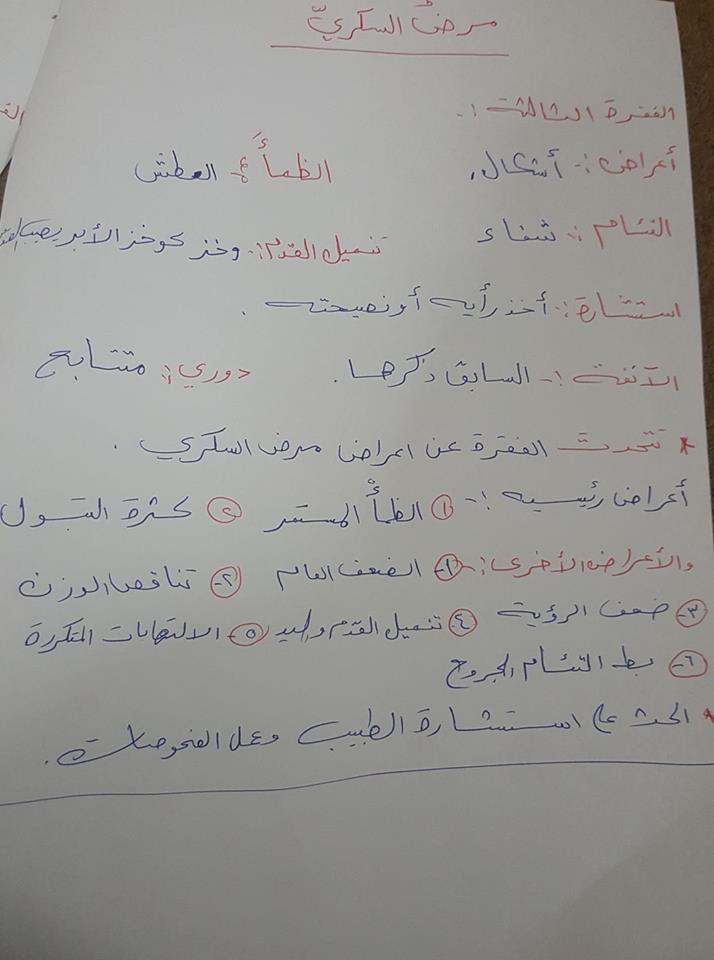 مرض السكريّ
الفقرة الثالثة :-
أعراض :- أشكال. الظمأَ : العطش
التئام :- شفاء تنميل القدم : وخز كوخز الأبر يصيب القدم
استشارة : أخذ رأيه أو نصيحته .
الآنفة :- السابق ذكرها . دوري : متتابع
* تتحدث الفقرة عن اعراض مرض السكري .
أعراض رئيسيه :- ١ الظمأْ المستمر ٢ كثرة التبول
والأعراض الأخرى :- ١- الضعف العام ٢- تناقص الوزن
٣- ضعف الرؤية ٤- تنميل القدم واليد ٥- الالتهابات المتكررة
٦- بط التئام الجروح
* الحث على استشارة الطبيب وعمل الفحوصات .